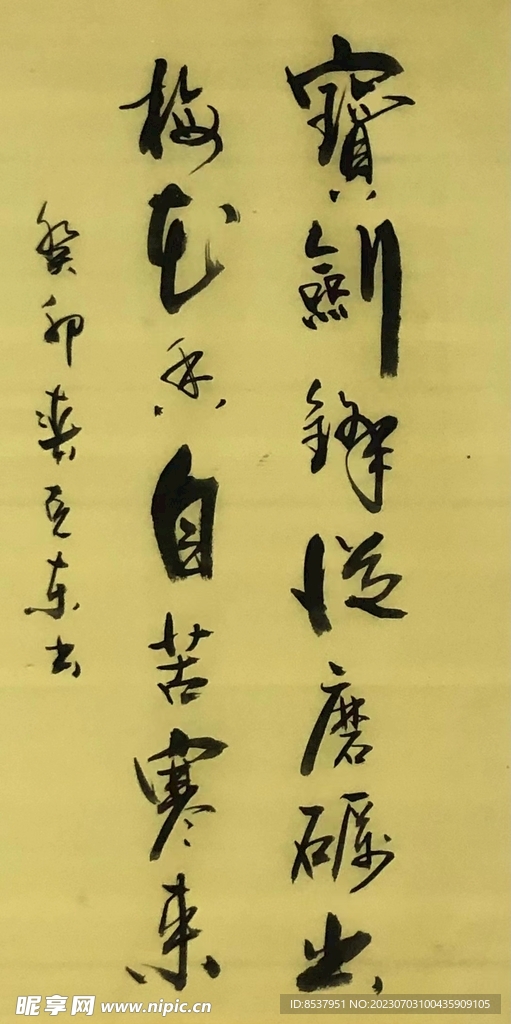 寶劍鋒從磨礪出
梅花香自苦寒來
癸卯龔克東书
昵享网 www.nipic.cn
ID:8537951 NO:20230703100435909105